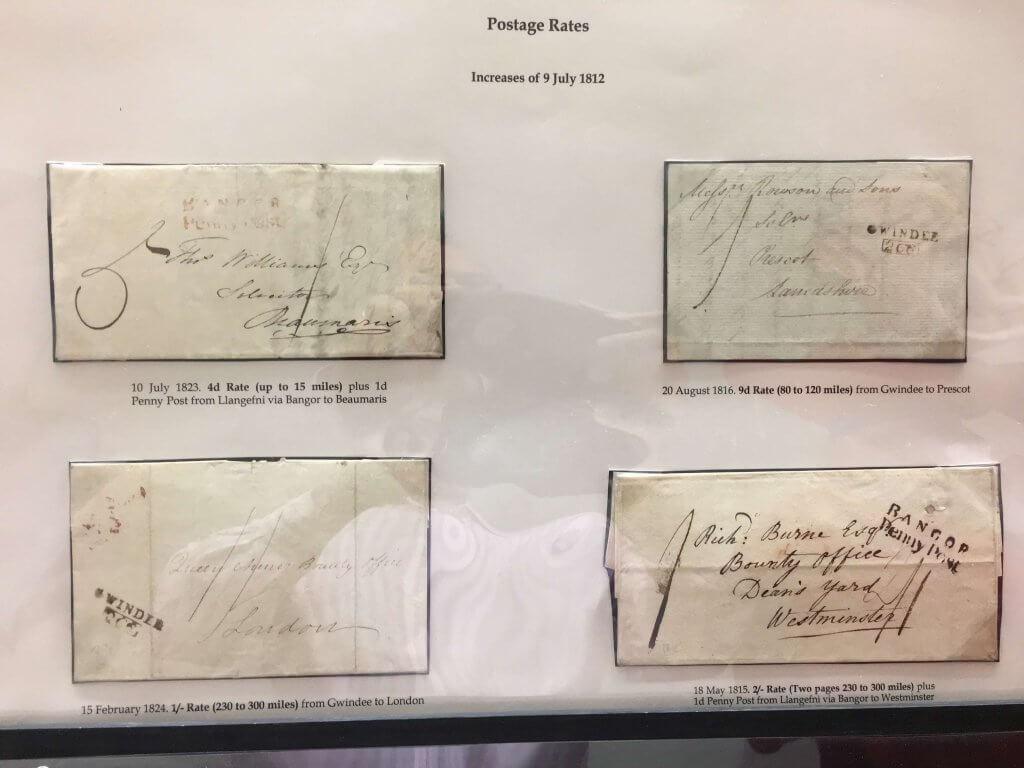 Postage Rates
Increases of 9 July 1812
BANGOR
Penny Post
Thos Williams Esqr
Solicitor
Beaumaris
10 July 1823. 4d Rate (up to 15 miles) plus 1d
Penny Post from Llangefni via Bangor to Beaumaris
Messrs Rowson and Sons
Solrs
Prescot
GWINDEE
266
20 August 1816. 9d Rate (80 to 120 miles) from Gwindee to Prescot
Queen Bounty Office
London
GWINDEE
266
15 February 1824. 1/- Rate (230 to 300 miles) from Gwindee to London
Richd: Burne Esqr
Bounty Office
Deans Yard
Westminster
BANGOR
Penny Post
18 May 1815. 2/- Rate (Two pages 230 to 300 miles) plus
1d Penny Post from Llangefni via Bangor to Westminster